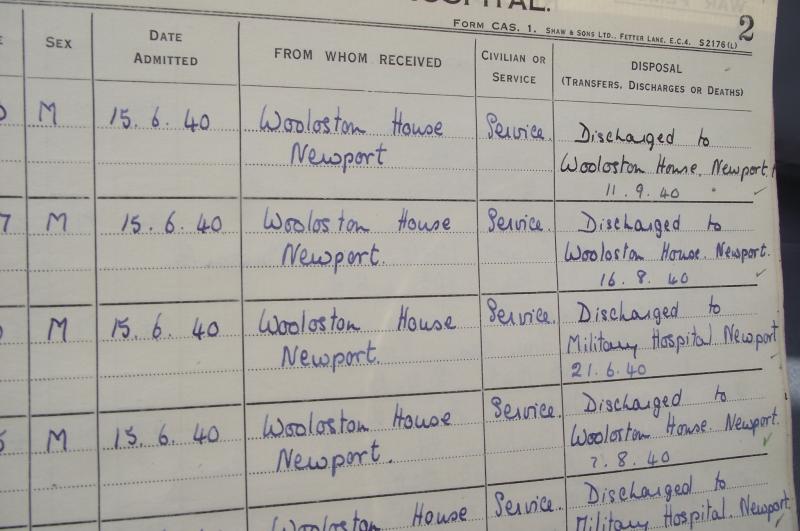 HOSPITAL.
FORM CAS. 1. SHAW & SONS LTD., FETTER LANE, E.C.4. S2176(L) 2
SEX DATE ADMITTED FROM WHOM RECEIVED CIVILIAN OR SERVICE DISPOSAL
(TRANSFERS, DISCHARGES OR DEATHS)
M 15. 6. 40 Wooloston House Service. Discharged to
Newport Wooloston House. Newport.
11. 9. 40
7 M 15. 6. 40 Wooloston House Service. Discharged to
Newport. Wooloston House. Newport.
16. 8. 40
M 15. 6. 40 Wooloston House Service. Discharged to
Newport. Military Hospital Newport
21. 6. 40
5 M 15. 6. 40 Wooloston House Service. Discharged to
Newport. Wooloston House Newport.
7. 8. 40
Wooloston House Service. Discharged to
Military Hospital, Newport.